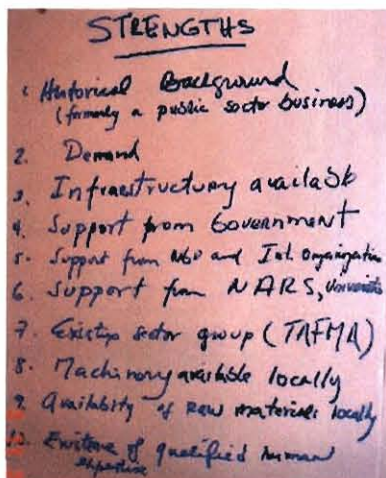 STRENGTHS
1. Historical Background
(formerly a public sector business)
2. Demand
3. Infrastructury available
4. Support from Government
5. Support from NGO and Int. Organization
6. Support from NARS, Universities
7. Existing sector group (TAFMA)
8. Machinery available locally
9. Availability of raw materials locally
10. Existence of qualified human
expertise